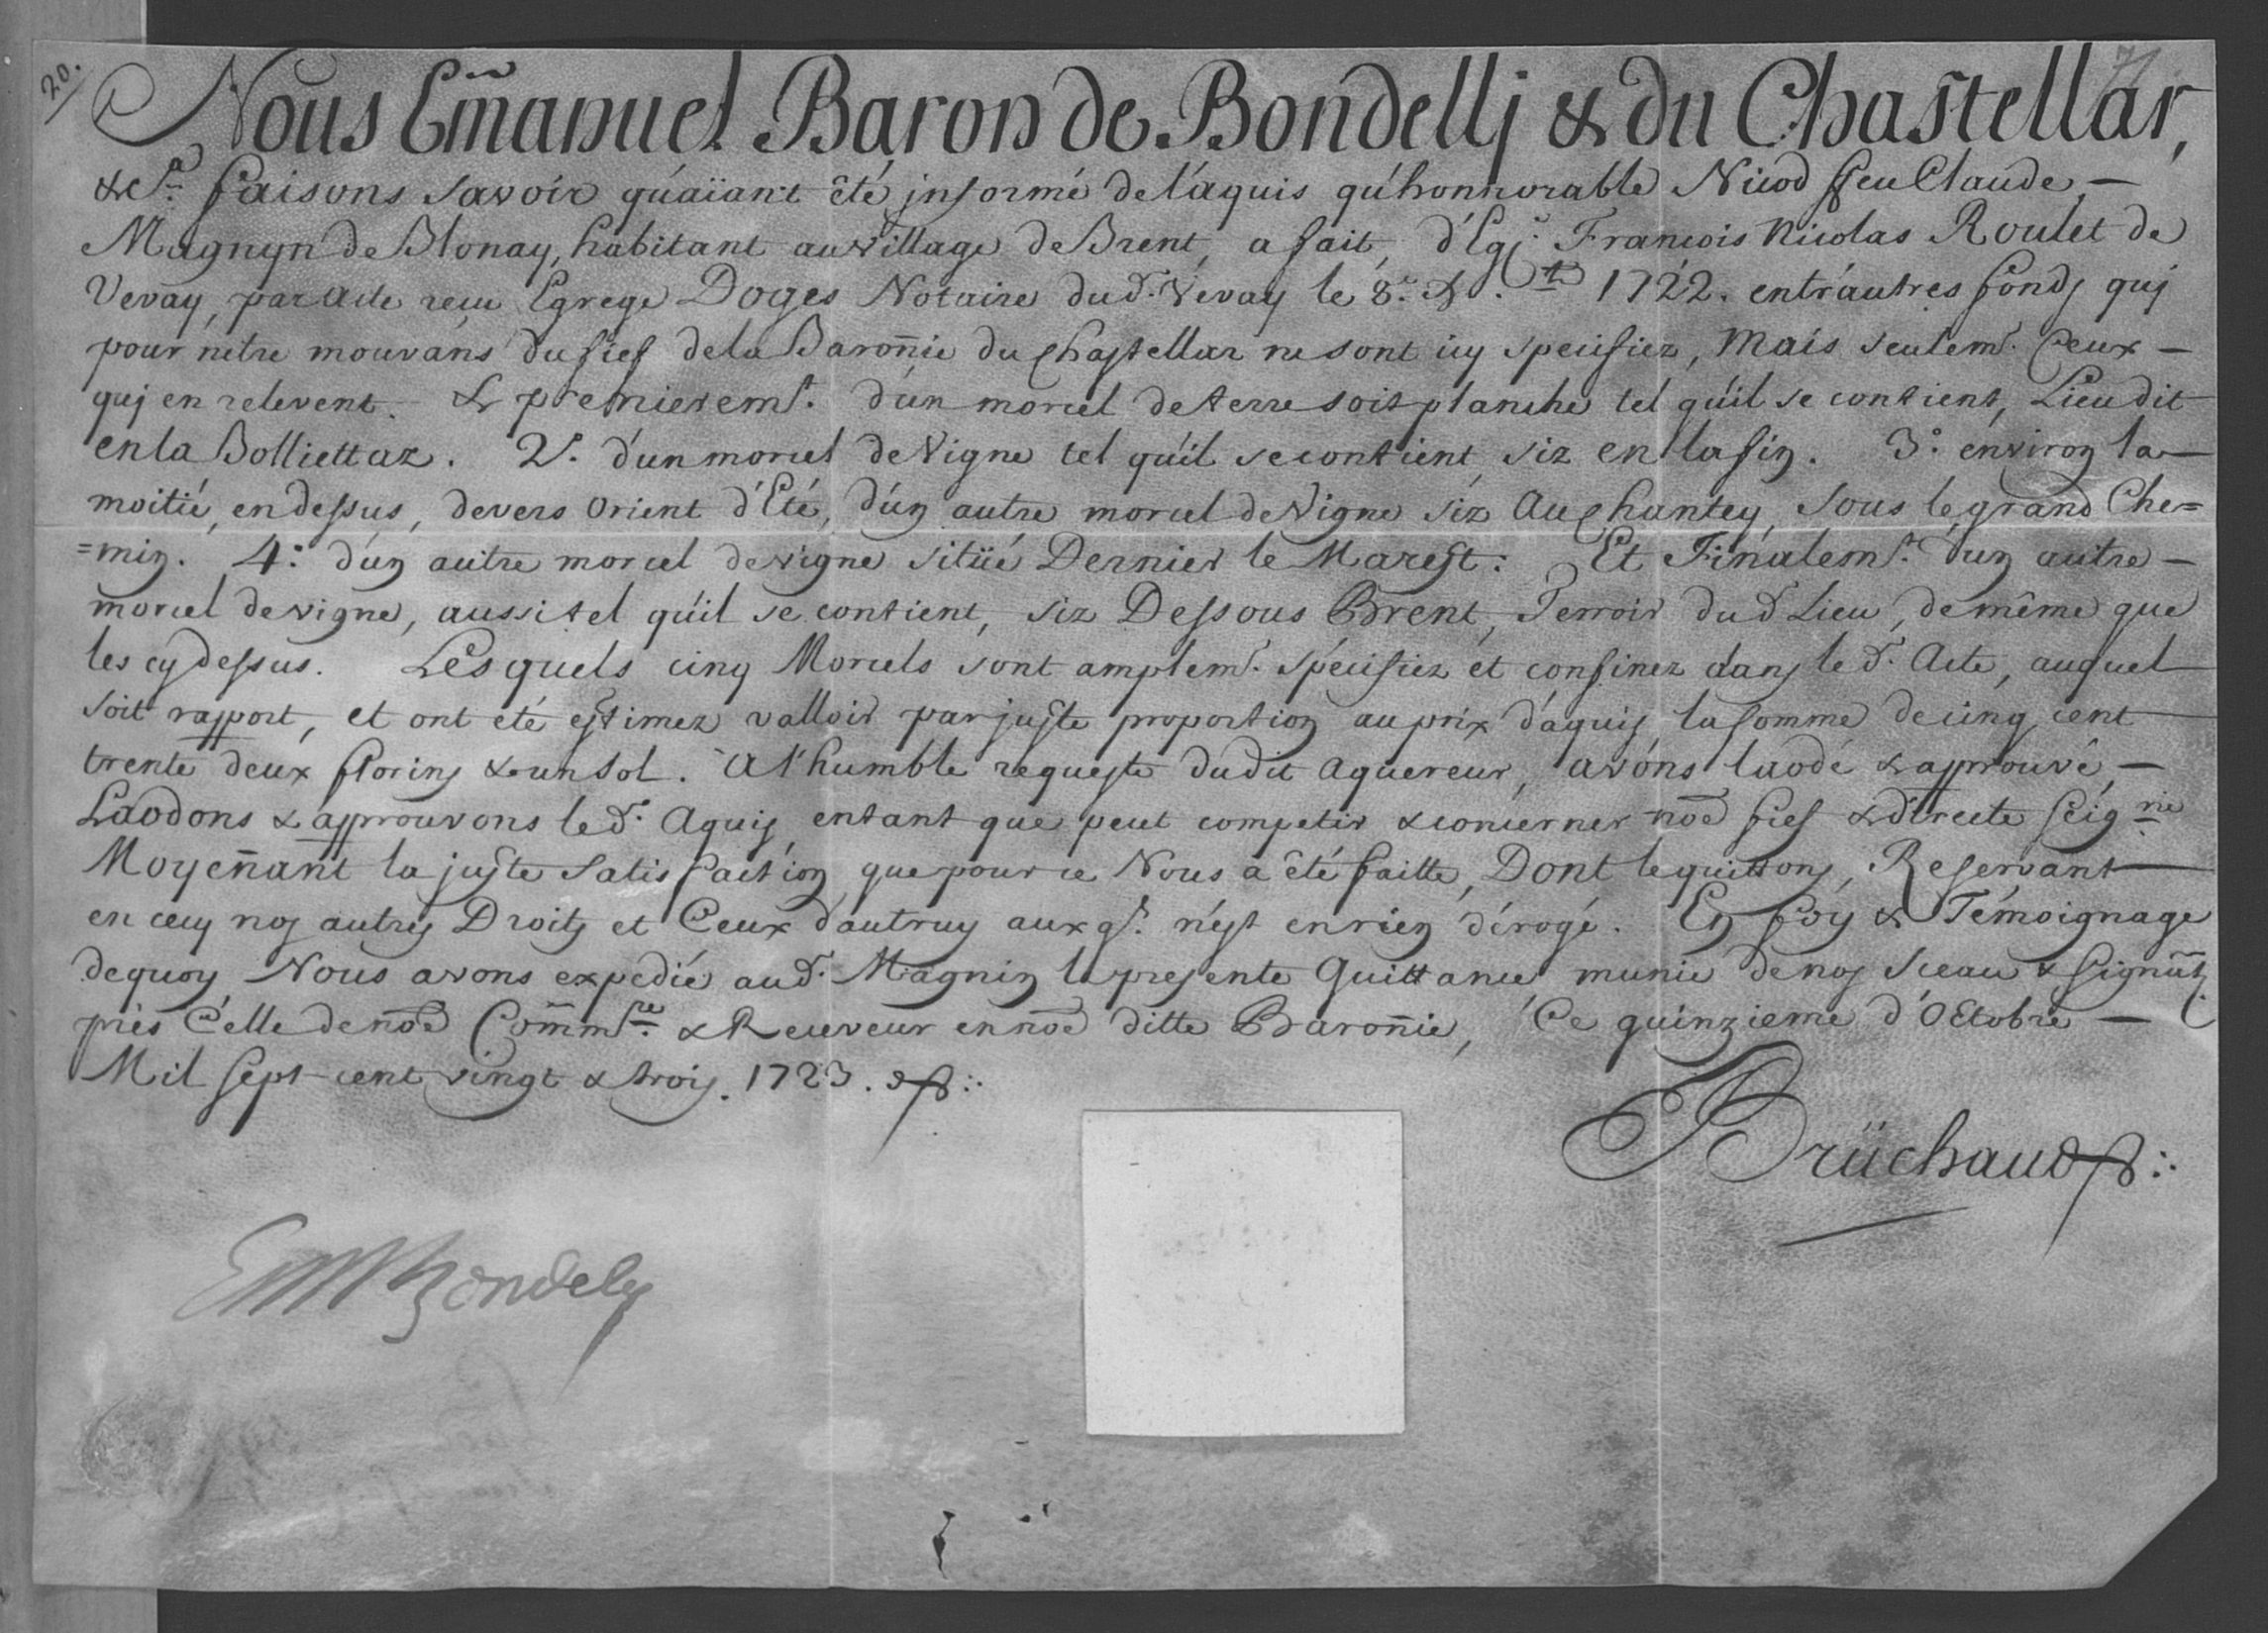 20.
Nous Em̃anuel Baron de Bondellj & du Chastellar,
&cª. faisons savoir qu'aïant été jnformé de l'aquis qu'honnorable Nicod ffeu Claude —
Magnyn de Blonay, habitant au village de Brent, a fait, d'Egᵉ. Francois Nicolas Roulet de
Vevay, par acte receu Egrege Doges Notaire dud. Vevay le 8ᵉ. 1722. entr'autres fonds quj
pour n'etre mouvans du fief de la Baron̄ie du Chastellar ne sont icy specifiez, Mais seulemᵗ. Ceux —
quj en relevent. & premieremᵗ. d'un morcel de terre soit planche tel qu'il se contient, Lieu dit
en la Bolliettaz. 2º. d'un morcel de vigne tel qu'il se contient siz en la fin. 3º. environ la
moitié, en dessus, devers Orient d'Eté, d'un autre morcel de vigne siz Au Chantey, sous le grand Che=
=min. 4º. d'un autre morcel de vigne sitüé Dernier le Marest: Et Finalemᵗ. d'un autre —
morcel de vigne, aussi tel qu'il se contient, siz Dessous Brent, Terroir dud Lieu, de même que
les cy dessus. Lesquels cinq Morcels sont amplemᵗ. spécifiez et confinez dans le d. Acte, auquel
soit rapport, et ont été estimez valloir par juste proportion au prix d'aquis la somme de cinq cent
trente deux florins & un sol. A l'humble requeste dudit aquereur, avons laodé & approuvé, —
Laodons & approuvons le d. Aquis, entant que peut competir & concerner nōe fief & directe seigʳⁱᵉ
Moyen̄ant la juste satisfaction que pour ce Nous a été faitte, Dont le quittons, Reservant
en cecy nos autres Droits et Ceux d'autruy aux qˡˢ. n'est en rien dérogé. En foy & Témoignage
dequoy Nous avons expedié aud. Magnin la presente Quittance munie de nos sceau & signat̃
près Celle de nōe Com̃mʳᵉ. & Receveur en nōe ditte Baron̄ie, Ce quinzieme d'Octobre —
Mil sept cent vingt & trois. 1723.
Brüchaud
Em Bondely